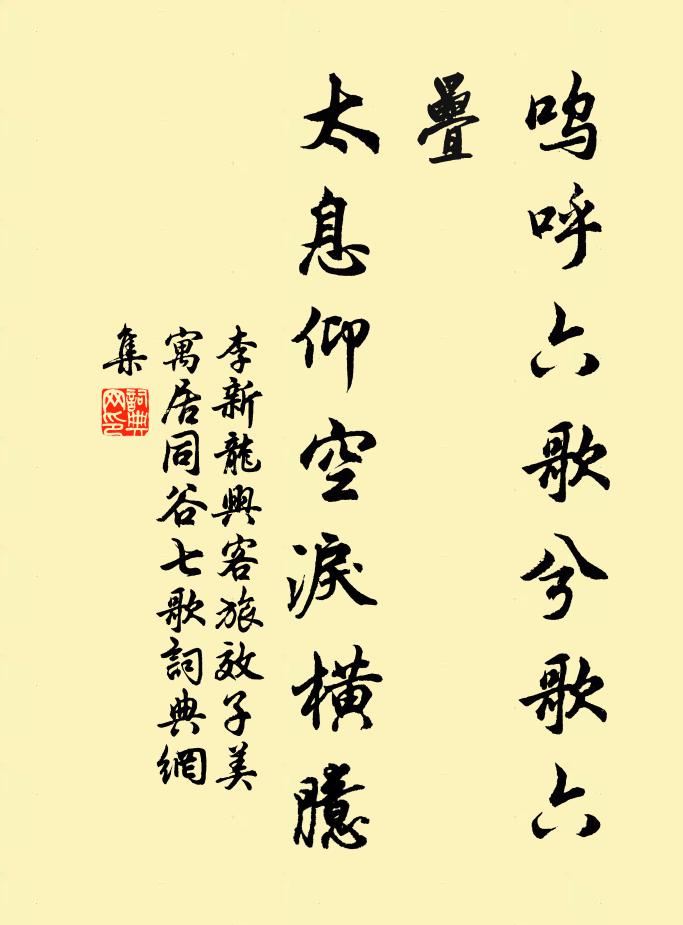 嗚呼六歌兮歌六
疊
太息仰空淚橫臆
李新龍興客旅效子美
寓居同谷七歌詞典網
集
詞典
网印